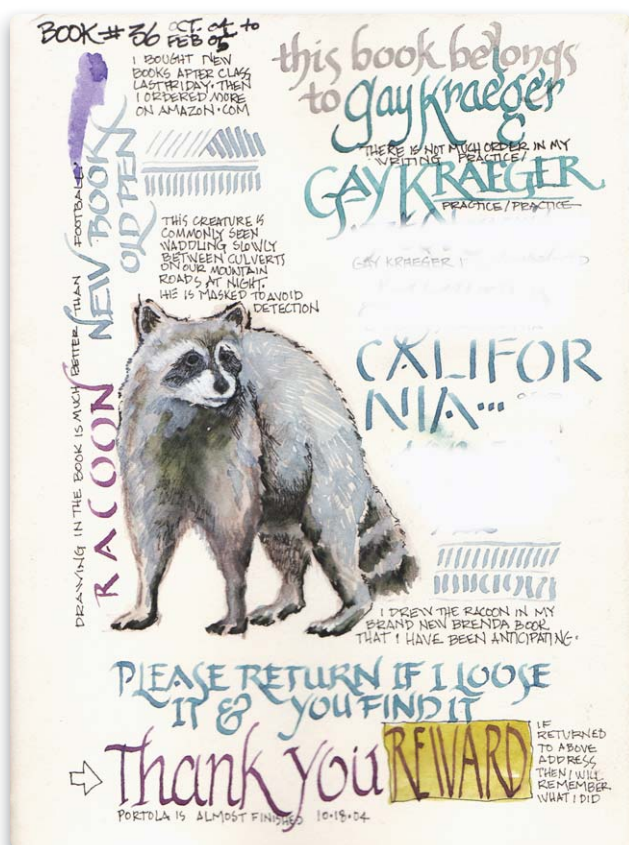 BOOK # 36 OCT. 04 to
FEB 05
I BOUGHT NEW
BOOKS AFTER CLASS
LAST FRIDAY. THEN
I ORDERED MORE
ON AMAZON.COM
this book belongs
to gay kraeger
&
THERE IS NOT MUCH ORDER IN MY
WRITING PRACTICE/
GAY KRAEGER
PRACTICE/PRACTICE
GAY KRAEGER
NEW BOOK
OLD PEN
THIS CREATURE IS
COMMONLY SEEN
WADDLING SLOWLY
BETWEEN CULVERTS
ON OUR MOUNTAIN
ROADS AT NIGHT.
HE IS MASKED TO AVOID
DETECTION
DRAWING IN THE BOOK IS MUCH BETTER THAN FOOTBALL
RACOON
CALIFOR
NIA...
I DREW THE RACOON IN MY
BRAND NEW BRENDA BOOK
THAT I HAVE BEEN ANTICIPATING.
PLEASE RETURN IF I LOOSE
IT & YOU FIND IT
Thank you REWARD
IF
RETURNED
TO ABOVE
ADDRESS
THEN I WILL
REMEMBER
WHAT I DID
PORTOLA IS ALMOST FINISHED 10.18.04